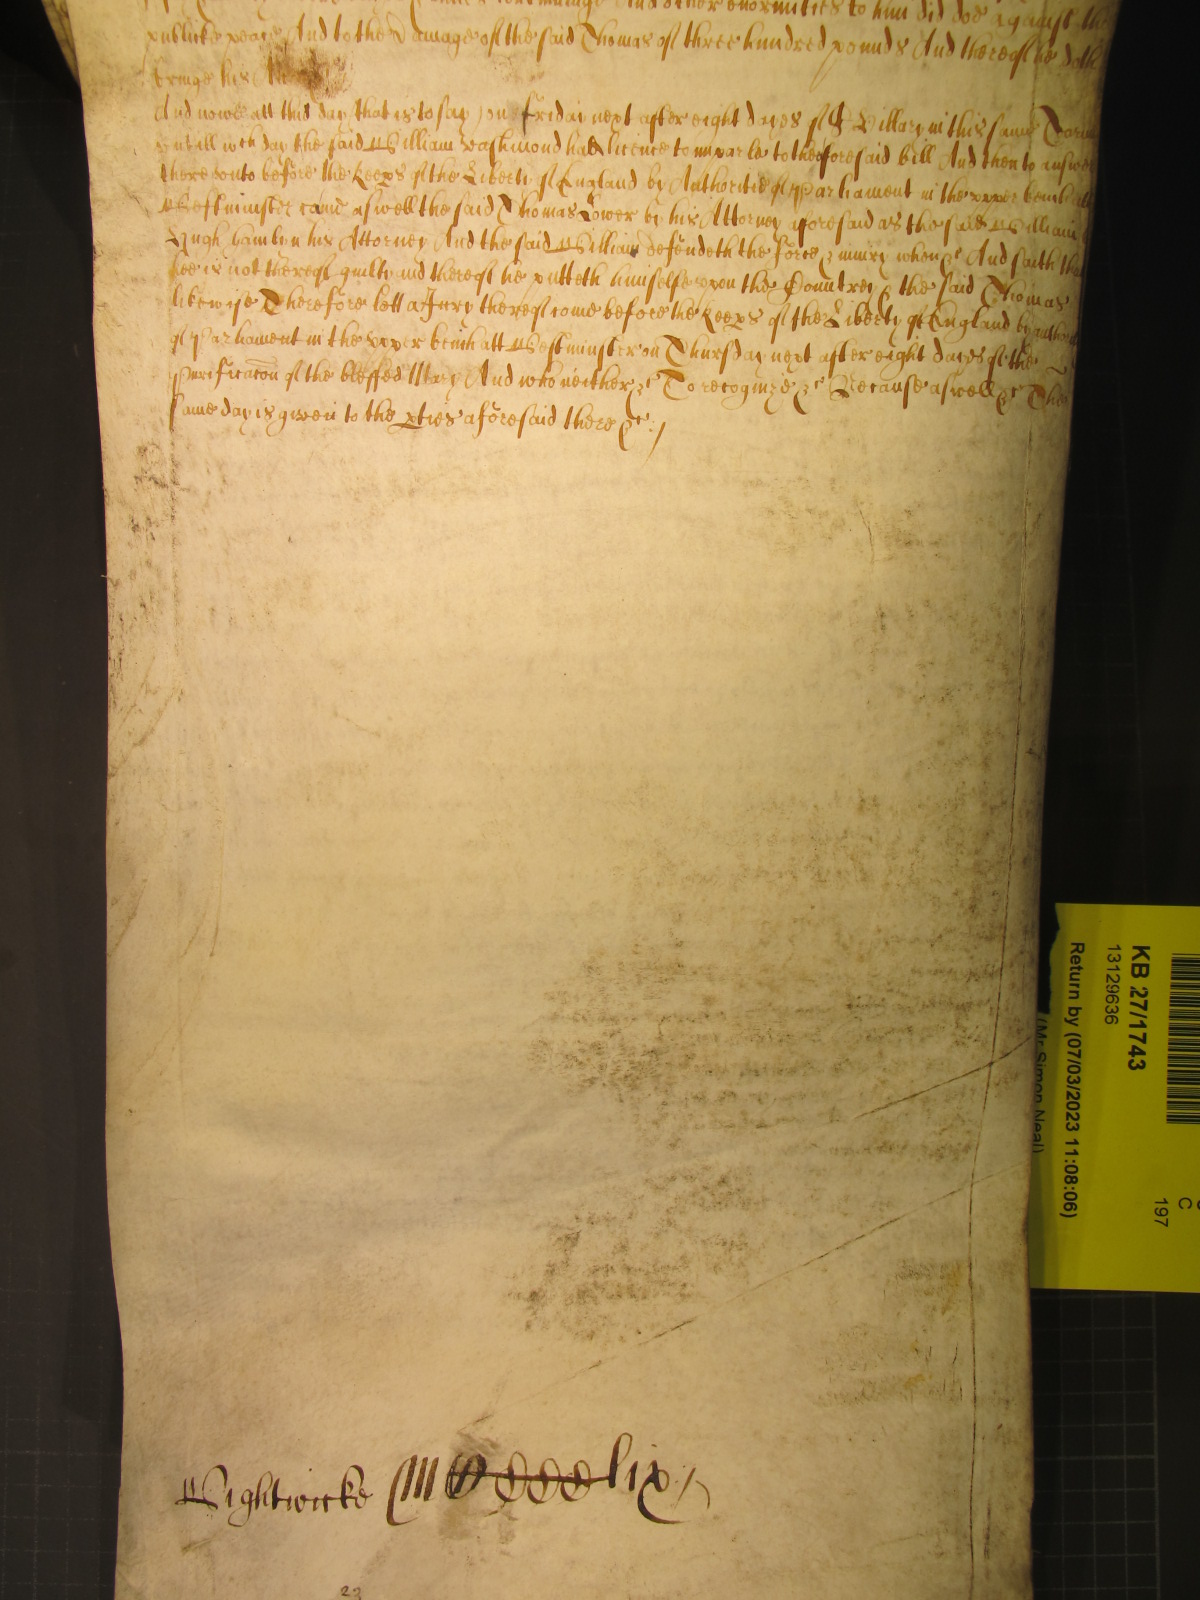 and other enormities to him did doe against the
publicke peace And to the Damage of the said Thomas of three hundred pounds And thereof he doth
bringe his
And nowe att this day that is to say on Friday next after eight dayes of St Hillary in this same Terme
untill wch day the said William Washmond had licence to imparle to the foresaid bill And then to answer
thereunto before the Keeps of the Liberty of England by Authoritie of Parliament in the upper bench att
Westminster came aswell the said Thomas Lower by his Attorney aforesaid as the said William by
Hugh Hamlyn his Attorney And the said William defendeth the force & iniury when &c And saith that
hee is not thereof guilty and thereof he putteth himselfe upon the Countrey & the said Thomas
likewise Therefore lett a Jury thereof come before the Keeps of the Liberty of England by authority
of Parliament in the upper bench att Westminster on Thursday next after eight dayes of the
purificacon of the blessed Mary And who neither &c To recognize &c Because aswell &c The
same day is given to the pties aforesaid there &c :/
Wightwicke lix
23
KB 27/1743
13129636
Return by (07/03/2023 11:08:06)
(Mr Simon Neal)
C
197